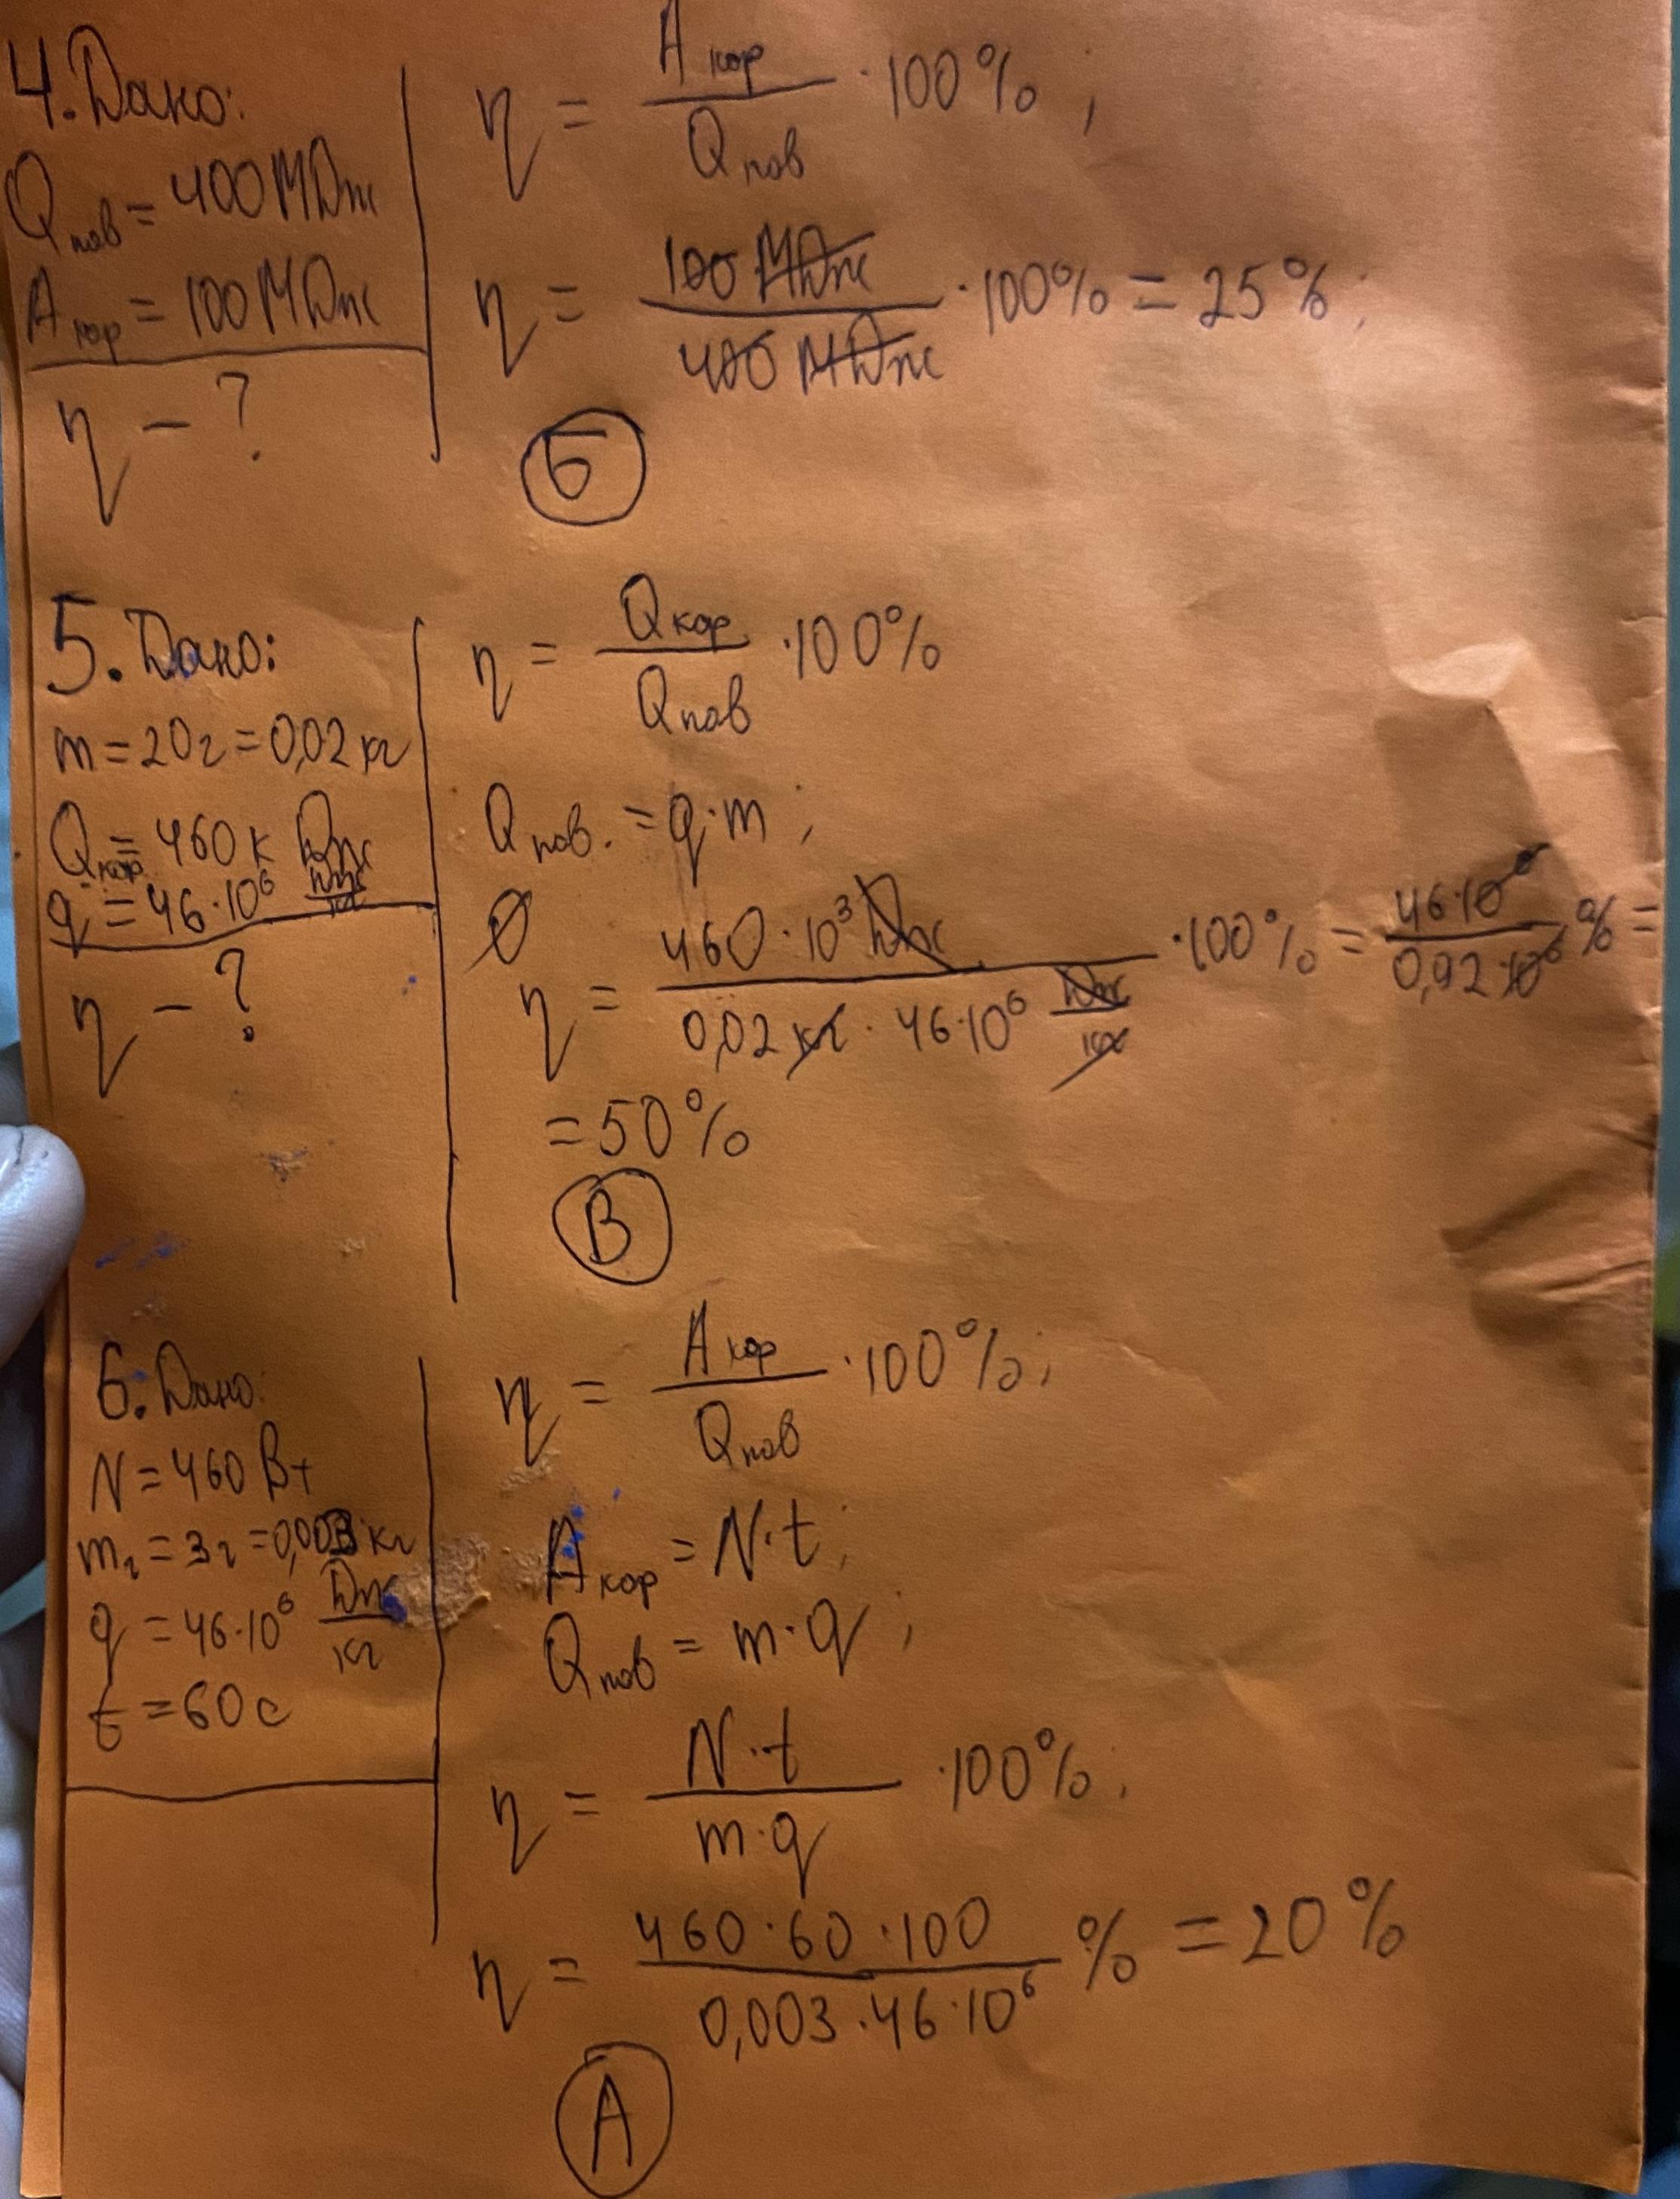 4. Дано:
Qпов = 400 МДж
Aкор = 100 МДж
η - ?
η = Aкор / Qпов · 100%;
η = 100 МДж / 400 МДж · 100% = 25%;
Б
5. Дано:
m = 20г = 0,02 кг
Qкор = 460 к Дж
q = 46·10⁶ Дж/кг
η - ?
η = Qкор / Qпов · 100%
Qпов. = q·m;
η = 460·10³ Дж / 0,02 кг · 46·10⁶ Дж/кг · 100% = 46·10⁶ / 0,92·10⁶ % =
= 50%
В
6. Дано:
N = 460 Вт
m₂ = 3г = 0,003 кг
q = 46·10⁶ Дж/кг
t = 60 с
η = Aкор / Qпов · 100%;
Aкор = N·t;
Qпов = m·q;
η = N·t / m·q · 100%;
η = 460·60·100 / 0,003·46·10⁶ % = 20%
А